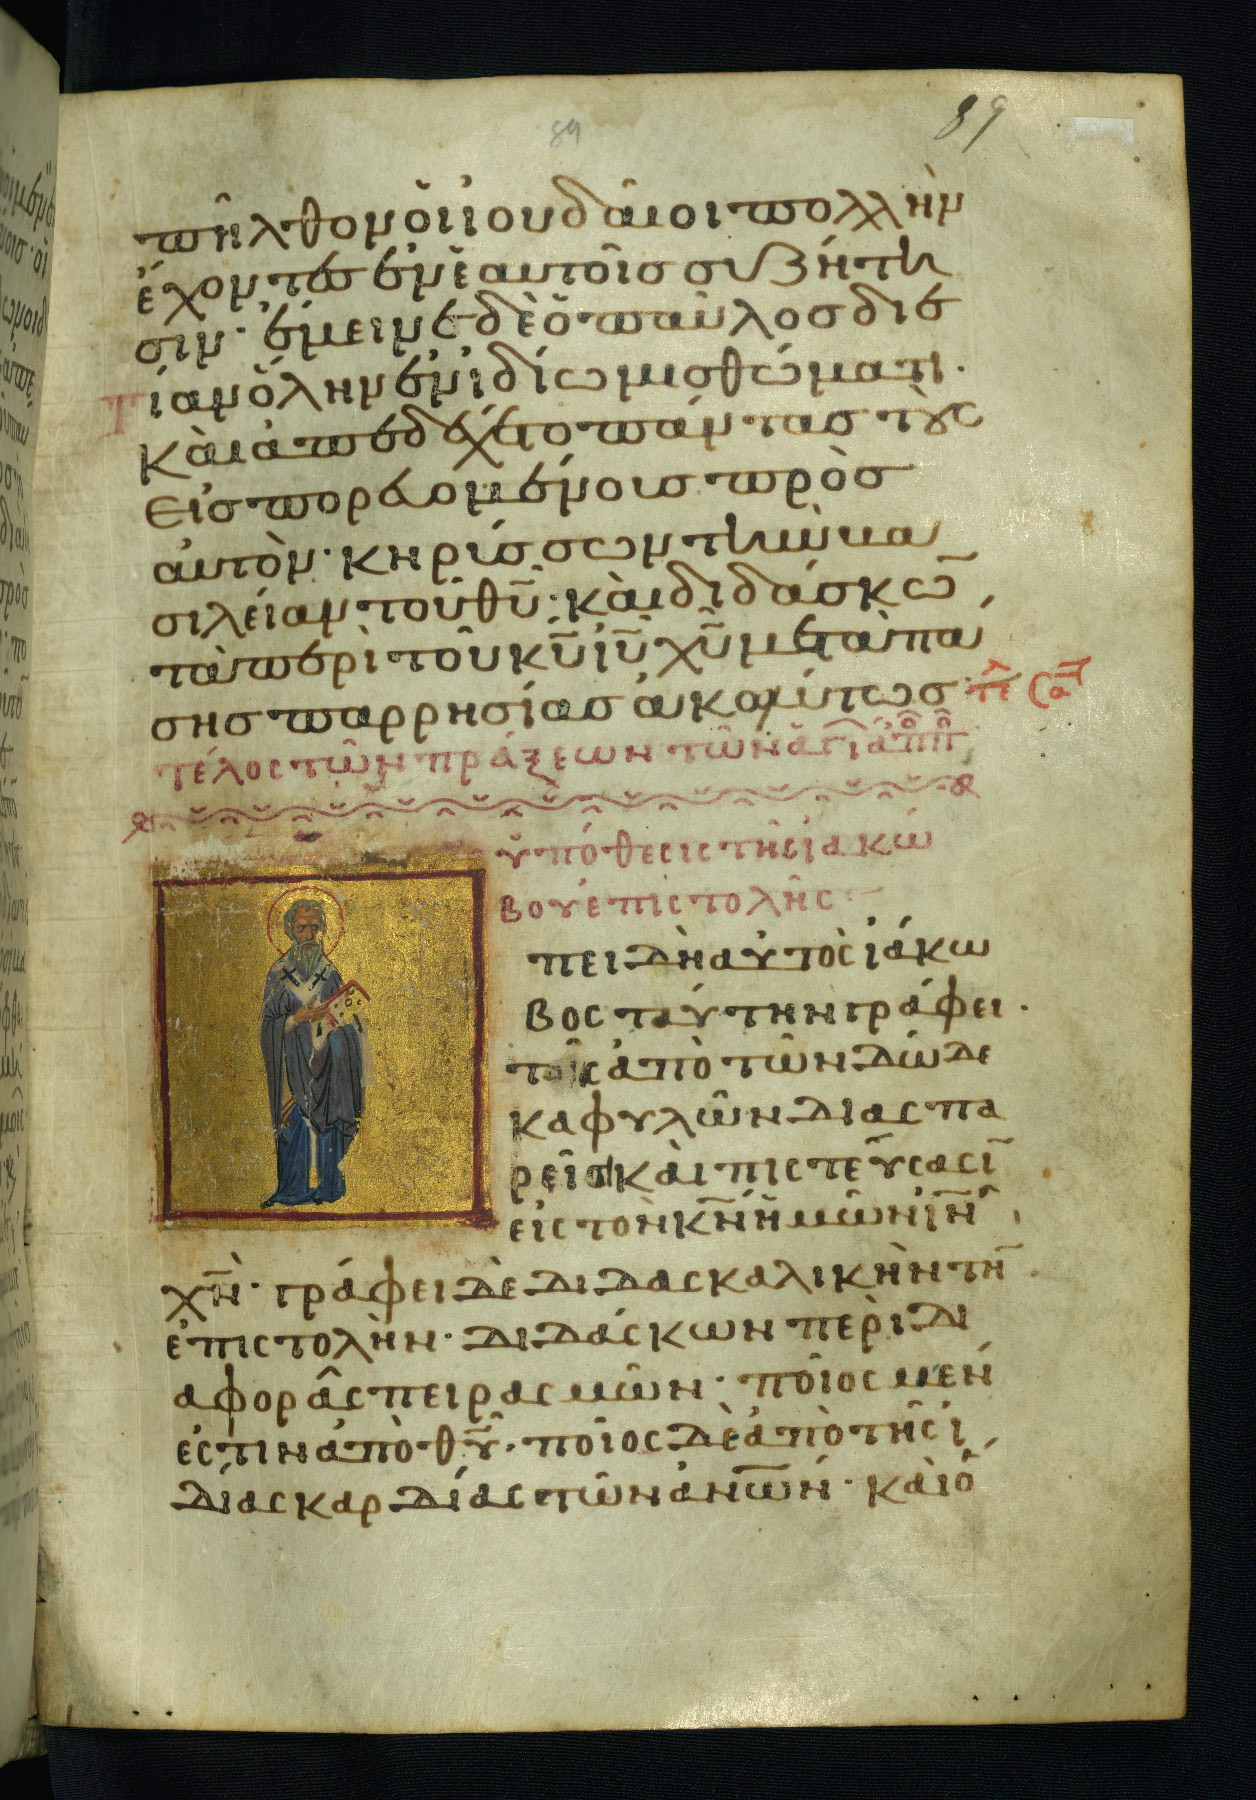 89
89
πῆλθον ὁι ἰουδαῖοι πολλὴν
ἔχοντες ἐν ἑαυτοῖς συζήτη
σιν· ἔμεινε δὲ ὁ παῦλος διε
τίαν ὅλην ἐν ἰδίω μισθώματι·
καὶ ἀπεδέχετο πάντας τοὺς
εἰσπορευομένους πρὸς
αὐτὸν· κηρύσσων τὴν βα
σιλείαν τοῦ θυ̅· καὶ διδάσκω̅
τὰ περὶ τοῦ κυ̅ ἰυ̅ χυ̅ μετὰ πα
σης παρρησίας ἀκωλύτως·
τέλος τῶν πράξεων τῶν ἁγί ἀπο
ὑπόθεσις τῆς ἰακώ
βου ἐπιστολῆς
πειδὴ αὐτὸς ἰάκω
βος ταύτην γράφει·
τοῖς ἀπὸ τῶν δώδε
κα φυλῶν διασπα
ρεῖσι καὶ πιστεύσασι̅
εἰς τὸν κν̅ ἡμῶν ἰν̅
χν̅· γράφει δὲ διδασκαλικὴν τὴ̅
ἐπιστολὴν· διδάσκων περὶ δι
αφορᾶς πειρασμῶν· ποῖος μὲν
ἐστιν ἀπὸ θυ̅· ποῖος δὲ ἀπὸ τῆς ἰ
δίας καρδίας τῶν ἀνω̅ν· καὶ ὁ